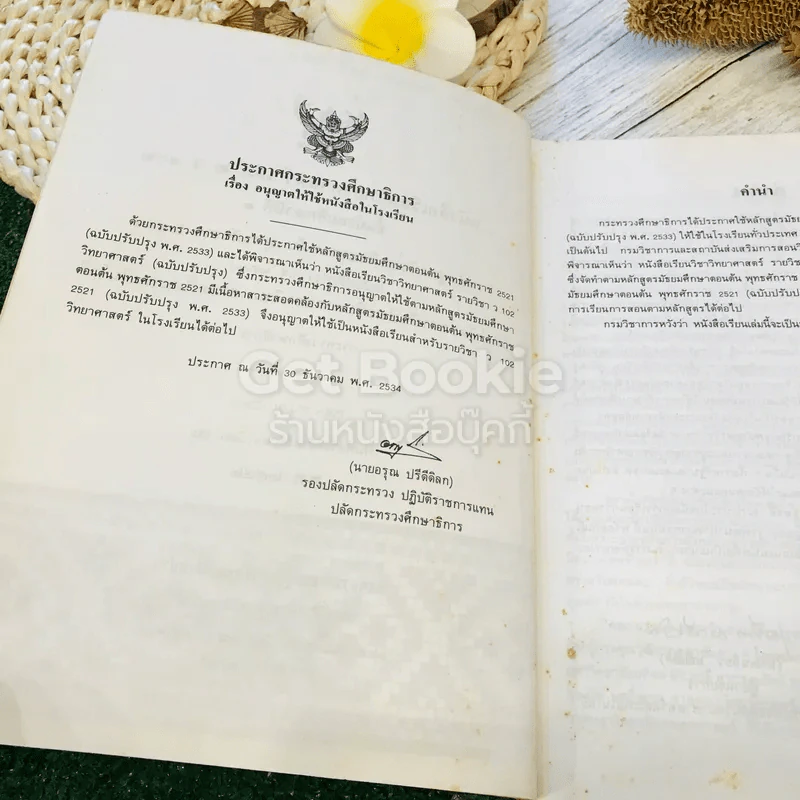 ประกาศกระทรวงศึกษาธิการ
เรื่อง อนุญาตให้ใช้หนังสือในโรงเรียน
ด้วยกระทรวงศึกษาธิการได้ประกาศใช้หลักสูตรมัธยมศึกษาตอนต้น พุทธศักราช 2521
(ฉบับปรับปรุง พ.ศ. 2533) และได้พิจารณาเห็นว่า หนังสือเรียนวิชาวิทยาศาสตร์ รายวิชา ว 102
วิทยาศาสตร์ (ฉบับปรับปรุง) ซึ่งกระทรวงศึกษาธิการอนุญาตให้ใช้ตามหลักสูตรมัธยมศึกษา
ตอนต้น พุทธศักราช 2521 มีเนื้อหาสาระสอดคล้องกับหลักสูตรมัธยมศึกษาตอนต้น พุทธศักราช
2521 (ฉบับปรับปรุง พ.ศ. 2533) จึงอนุญาตให้ใช้เป็นหนังสือเรียนสำหรับรายวิชา ว 102
วิทยาศาสตร์ ในโรงเรียนได้ต่อไป
ประกาศ ณ วันที่ 30 ธันวาคม พ.ศ. 2534
(นายอรุณ ปรีดีดิลก)
รองปลัดกระทรวง ปฏิบัติราชการแทน
ปลัดกระทรวงศึกษาธิการ
คำนำ
กระทรวงศึกษาธิการได้ประกาศใช้หลักสูตรมัธยมศึกษา
(ฉบับปรับปรุง พ.ศ. 2533) ให้ใช้ในโรงเรียนทั่วประเทศ
เป็นต้นไป กรมวิชาการและสถาบันส่งเสริมการสอน
พิจารณาเห็นว่า หนังสือเรียนวิชาวิทยาศาสตร์ รายวิชา ว 102
ซึ่งจัดทำตามหลักสูตรมัธยมศึกษาตอนต้น พุทธศักราช
มัธยมศึกษาตอนต้น พุทธศักราช 2521 (ฉบับ
การเรียนการสอนตามหลักสูตรได้ต่อไป
กรมวิชาการหวังว่า หนังสือเรียนเล่มนี้จะเป็น
Get Bookie
ร้านหนังสือบุ๊คกี้